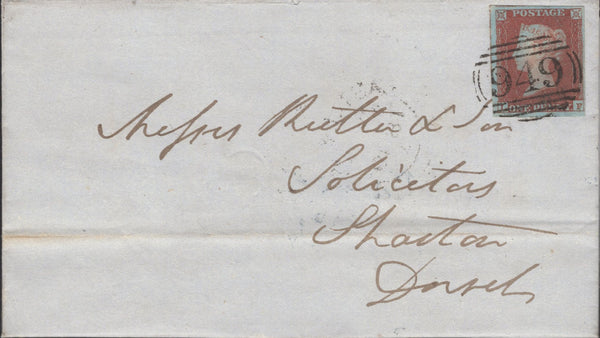 POSTAGE
949
ONE PENNY
Messrs Rutter & Son
Solicitors
Shaston
Dorset